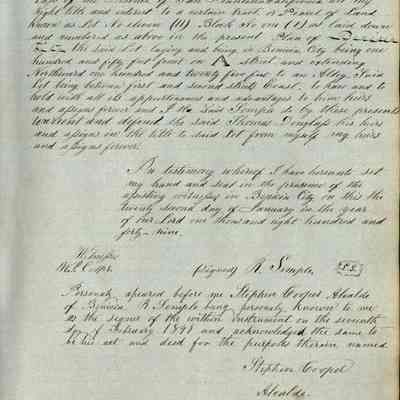 right title and interest to a certain Parcel of Land
known as Lot No eleven (11) Block No one (1) as laid down
and numbered as above in the present Plan of Benicia
City the said lot laying and being in Benicia City being one
hundred and fifty feet front on A street, and extending
Northward one hundred and twenty five feet to an Alley Said
Lot being between first and second street East. to have and to
hold with all its appurtenances and advantages to him heirs
and assigns forever and I the said Semple do by these presents
warrant and defend the said Thomas Douglass his heirs
and assigns on the title to said lot from myself my heirs
and assigns forever.
In testimony whereof I have hereunto set
my hand and seal in the presence of the
attesting witnesses in Benicia City on this the
twenty second day of January in the year
of our Lord one thousand eight hundred and
forty-nine.
Witness
(signed) R. Semple, L.S.
Personaly apeared before me Stephen Cooper Alcalde
of Benicia R. Semple being personaly known to me
as the signer of the within instrument on the seventh
day of February 1848 and acknowledged the same to
be his act and deed for the purposes therein named
Stephen Cooper
Alcalde.